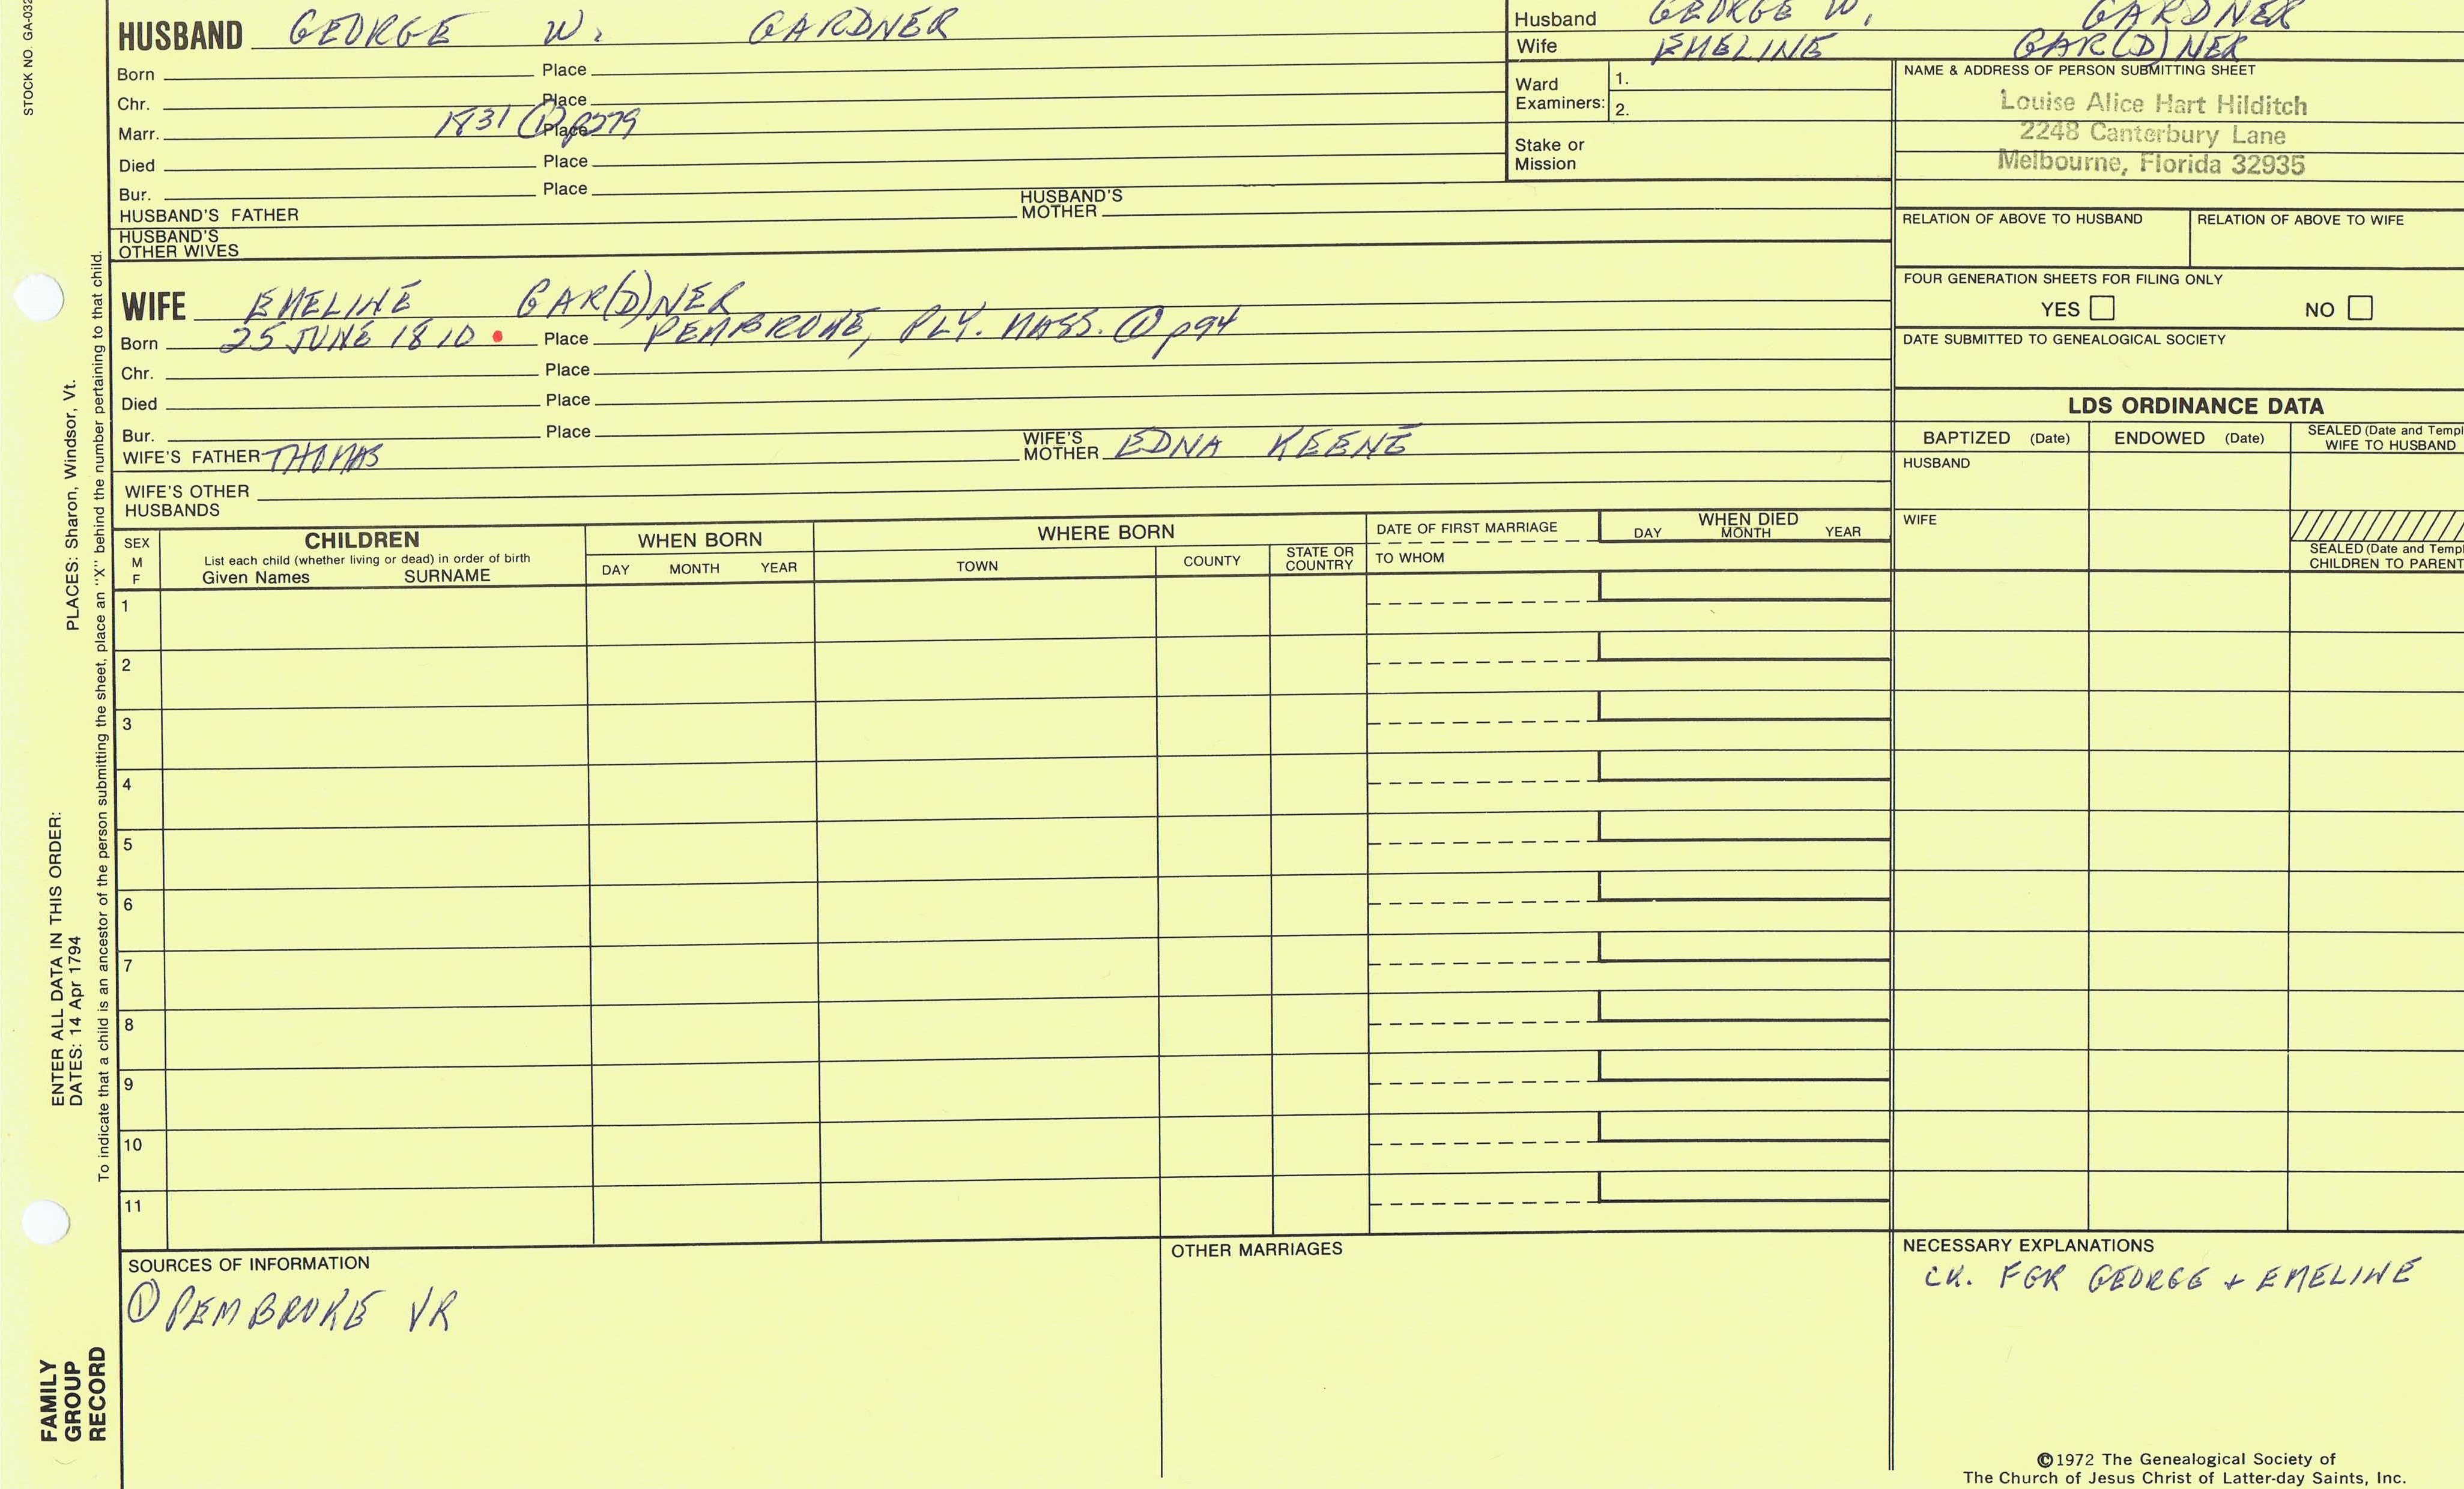 STOCK NO. GA-032
HUSBAND GEORGE W. GARDNER
Born Place
Chr. Place
Marr. 1831 ① p279 Place
Died Place
Bur. Place
HUSBAND'S FATHER HUSBAND'S MOTHER
HUSBAND'S OTHER WIVES
Husband GEORGE W. GARDNER
Wife EMELINE GAR(D)NER
Ward Examiners: 1.
2.
Stake or Mission
NAME & ADDRESS OF PERSON SUBMITTING SHEET
Louise Alice Hart Hilditch
2248 Canterbury Lane
Melbourne, Florida 32935
RELATION OF ABOVE TO HUSBAND RELATION OF ABOVE TO WIFE
FOUR GENERATION SHEETS FOR FILING ONLY
YES NO
DATE SUBMITTED TO GENEALOGICAL SOCIETY
WIFE EMELINE GAR(D)NER
Born 25 JUNE 1810 Place PEMBROKE, PLY. MASS. ① p94
Chr. Place
Died Place
Bur. Place
WIFE'S FATHER THOMAS WIFE'S MOTHER EDNA KEENE
WIFE'S OTHER HUSBANDS
LDS ORDINANCE DATA
BAPTIZED (Date) ENDOWED (Date) SEALED (Date and Templ
WIFE TO HUSBAND
HUSBAND
WIFE
SEALED (Date and Templ
CHILDREN TO PARENT
SEX
M
F
CHILDREN
List each child (whether living or dead) in order of birth
Given Names SURNAME
WHEN BORN
DAY MONTH YEAR
WHERE BORN
TOWN COUNTY STATE OR COUNTRY
DATE OF FIRST MARRIAGE
TO WHOM
WHEN DIED
DAY MONTH YEAR
1
2
3
4
5
6
7
8
9
10
11
SOURCES OF INFORMATION
① PEMBROKE VR
OTHER MARRIAGES
NECESSARY EXPLANATIONS
CK. FGR GEORGE + EMELINE
©1972 The Genealogical Society of
The Church of Jesus Christ of Latter-day Saints, Inc.
PLACES: Sharon, Windsor, Vt.
ENTER ALL DATA IN THIS ORDER:
DATES: 14 Apr 1794
To indicate that a child is an ancestor of the person submitting the sheet, place an "X" behind the number pertaining to that child.
FAMILY
GROUP
RECORD